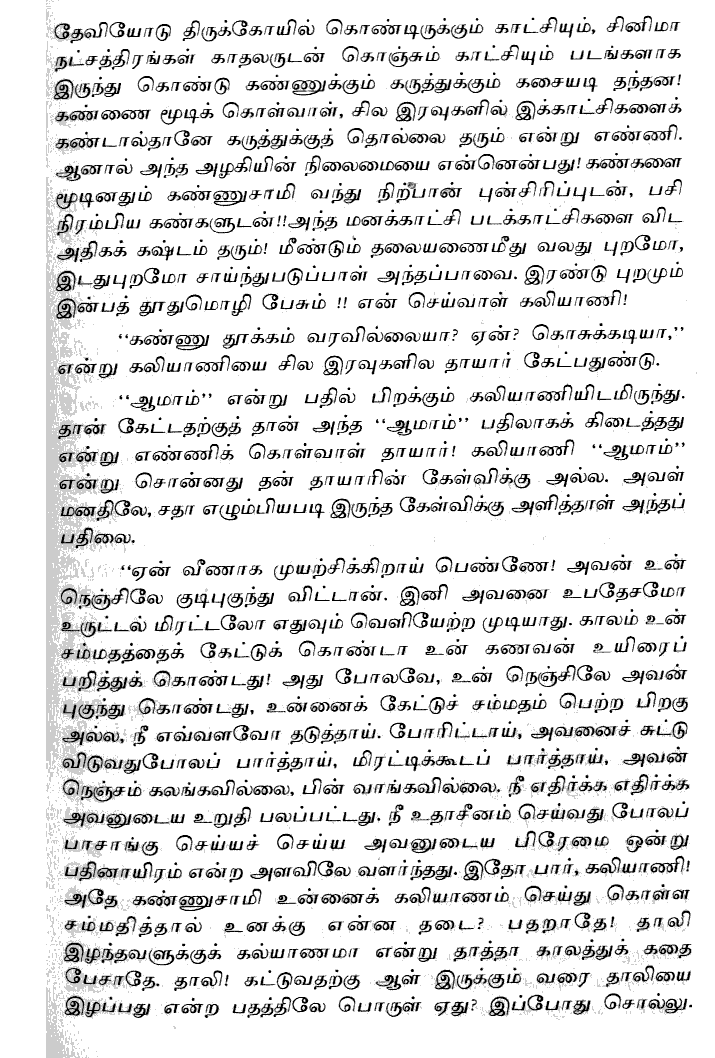 தேவியோடு திருக்கோயில் கொண்டிருக்கும் காட்சியும், சினிமா
நட்சத்திரங்கள் காதலருடன் கொஞ்சும் காட்சியும் படங்களாக
இருந்து கொண்டு கண்ணுக்கும் கருத்துக்கும் கசையடி தந்தன!
கண்ணை மூடிக் கொள்வாள், சில இரவுகளில் இக்காட்சிகளைக்
கண்டால்தானே கருத்துக்குத் தொல்லை தரும் என்று எண்ணி.
ஆனால் அந்த அழகியின் நிலைமையை என்னென்பது! கண்களை
மூடினதும் கண்ணுசாமி வந்து நிற்பான் புன்சிரிப்புடன், பசி
நிரம்பிய கண்களுடன்!! அந்த மனக்காட்சி படக்காட்சிகளை விட
அதிகக் கஷ்டம் தரும்! மீண்டும் தலையணைமீது வலது புறமோ,
இடதுபுறமோ சாய்ந்துபடுப்பாள் அந்தப்பாவை. இரண்டு புறமும்
இன்பத் தூதுமொழி பேசும் !! என் செய்வாள் கலியாணி!
‘‘கண்ணு தூக்கம் வரவில்லையா? ஏன்? கொசுக்கடியா,’’
என்று கலியாணியை சில இரவுகளில தாயார் கேட்பதுண்டு.
‘‘ஆமாம்’’ என்று பதில் பிறக்கும் கலியாணியிடமிருந்து.
தான் கேட்டதற்குத் தான் அந்த ‘‘ஆமாம்’’ பதிலாகக் கிடைத்தது
என்று எண்ணிக் கொள்வாள் தாயார்! கலியாணி ‘‘ஆமாம்’’
என்று சொன்னது தன் தாயாரின் கேள்விக்கு அல்ல. அவள்
மனதிலே, சதா எழும்பியபடி இருந்த கேள்விக்கு அளித்தாள் அந்தப்
பதிலை.
‘‘ஏன் வீணாக முயற்சிக்கிறாய் பெண்ணே! அவன் உன்
நெஞ்சிலே குடிபுகுந்து விட்டான். இனி அவனை உபதேசமோ
உருட்டல் மிரட்டலோ எதுவும் வெளியேற்ற முடியாது. காலம் உன்
சம்மதத்தைக் கேட்டுக் கொண்டா உன் கணவன் உயிரைப்
பறித்துக் கொண்டது! அது போலவே, உன் நெஞ்சிலே அவன்
புகுந்து கொண்டது, உன்னைக் கேட்டுச் சம்மதம் பெற்ற பிறகு
அல்ல, நீ எவ்வளவோ தடுத்தாய். போரிட்டாய், அவனைச் சுட்டு
விடுவதுபோலப் பார்த்தாய், மிரட்டிக்கூடப் பார்த்தாய், அவன்
நெஞ்சம் கலங்கவில்லை, பின் வாங்கவில்லை. நீ எதிர்க்க எதிர்க்க
அவனுடைய உறுதி பலப்பட்டது. நீ உதாசீனம் செய்வது போலப்
பாசாங்கு செய்யச் செய்ய அவனுடைய பிரேமை ஒன்று
பதினாயிரம் என்ற அளவிலே வளர்ந்தது. இதோ பார், கலியாணி!
அதே கண்ணுசாமி உன்னைக் கலியாணம் செய்து கொள்ள
சம்மதித்தால் உனக்கு என்ன தடை? பதறாதே! தாலி
இழந்தவளுக்குக் கல்யாணமா என்று தாத்தா காலத்துக் கதை
பேசாதே. தாலி! கட்டுவதற்கு ஆள் இருக்கும் வரை தாலியை
இழப்பது என்ற பதத்திலே பொருள் ஏது? இப்போது சொல்லு.